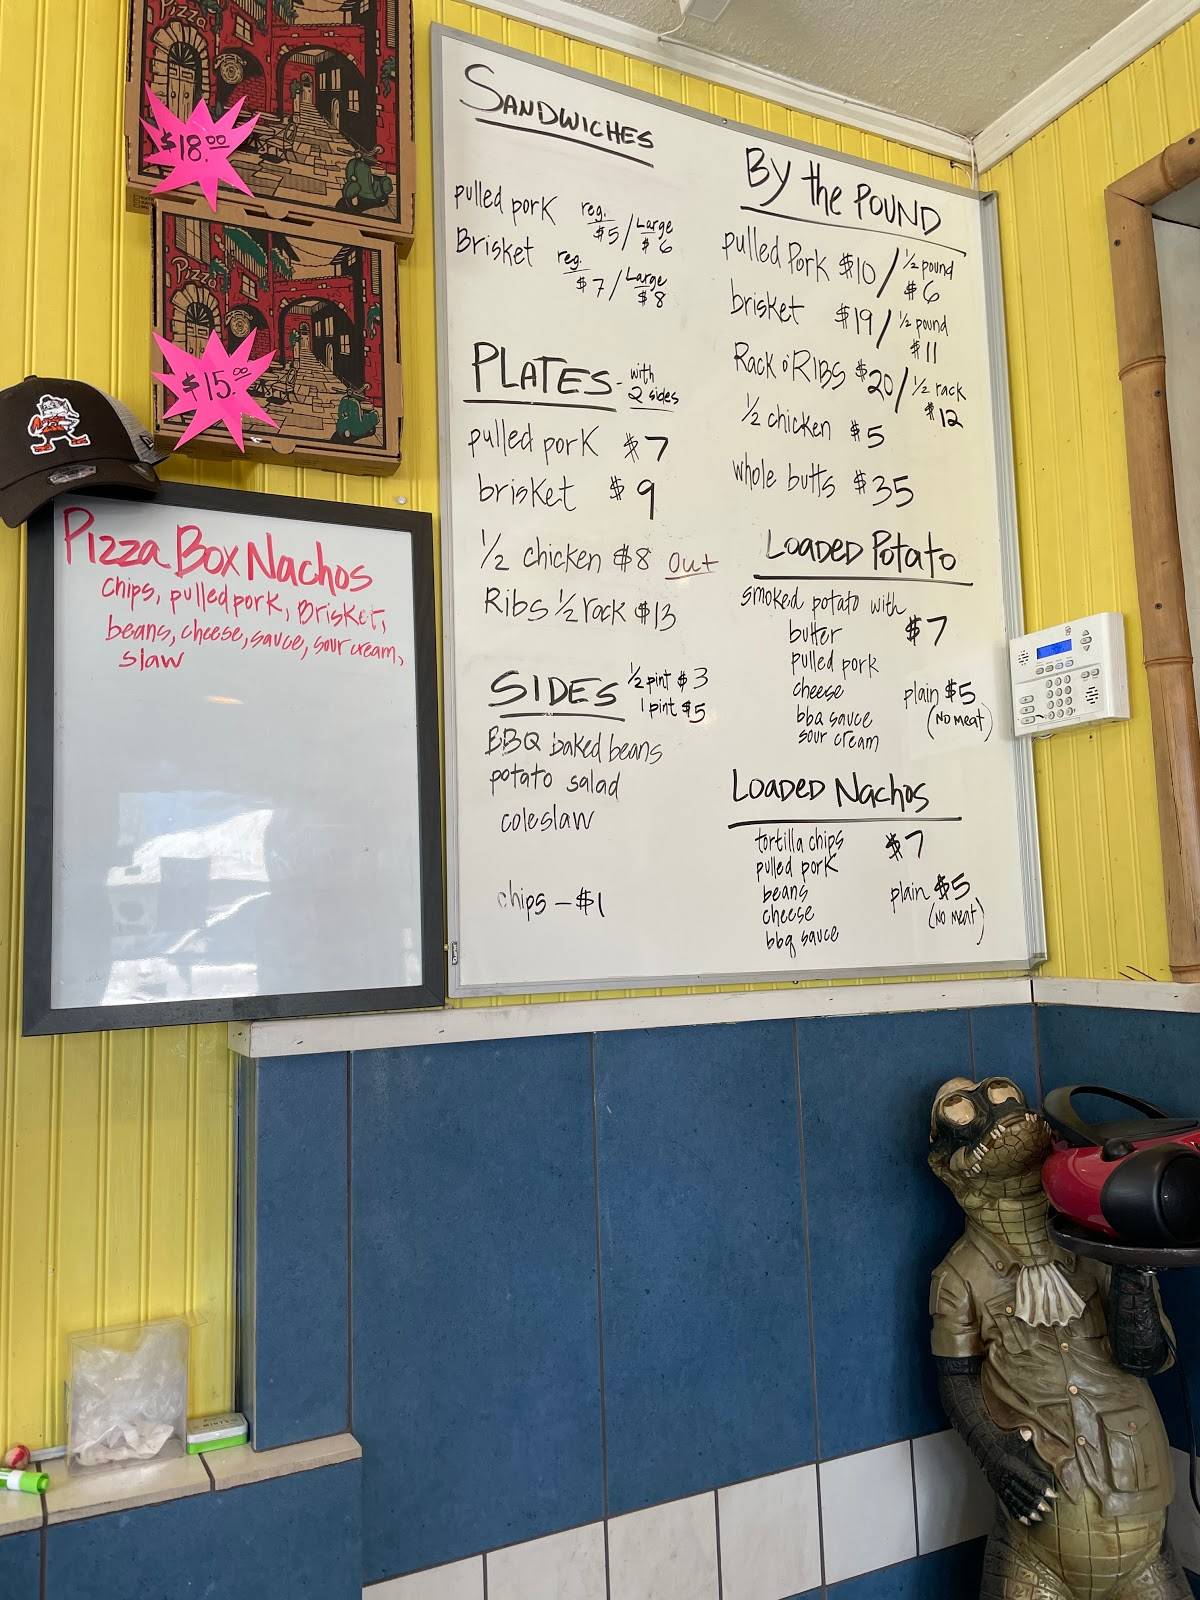 Pizza
$18.00
Pizza
$15.00
Pizza Box Nachos
chips, pulled pork, Brisket,
beans, cheese, sauce, sour cream,
slaw
SANDWICHES
pulled pork reg. $5 / Large $6
Brisket reg. $7 / Large $8
PLATES - with 2 sides
pulled pork $7
brisket $9
1/2 chicken $8 out
Ribs 1/2 rack $13
SIDES 1/2 pint $3
1 pint $5
BBQ baked beans
potato salad
coleslaw
chips - $1
By the POUND
pulled Pork $10 / 1/2 pound $6
brisket $19 / 1/2 pound $11
Rack o' RIBS $20 / 1/2 rack $12
1/2 chicken $5
whole butts $35
LOADED Potato
smoked potato with $7
butter
pulled pork
cheese plain $5
bbq sauce (No meat)
sour cream
LOADED Nachos
tortilla chips $7
pulled pork
beans plain $5
cheese (No meat)
bbq sauce